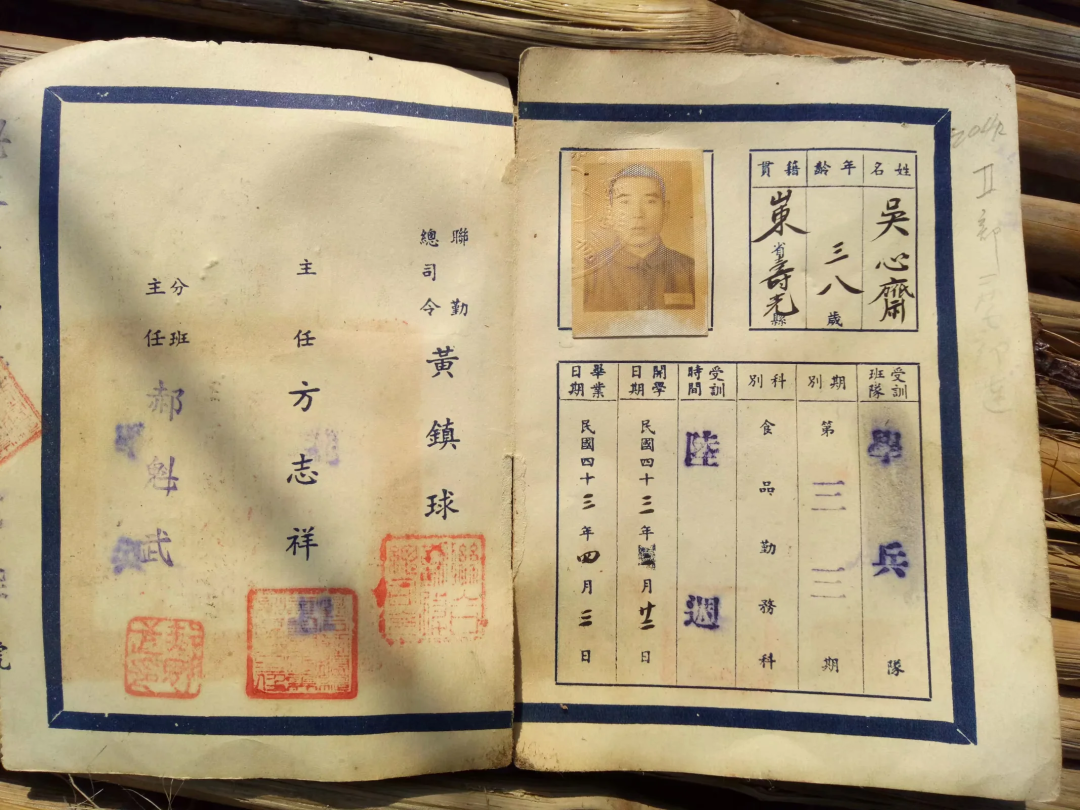 姓名
吳心齋
年齡
三八歲
籍貫
山東省壽光縣
受訓班隊
學兵隊
期別
第三三期
科別
食品勤務科
受訓時間
陸週
開學日期
民國四十三年 月廿二日
畢業日期
民國四十三年四月三日
II部
聯勤總司令 黃鎮球
主任 方志祥
分班主任 郝魁武